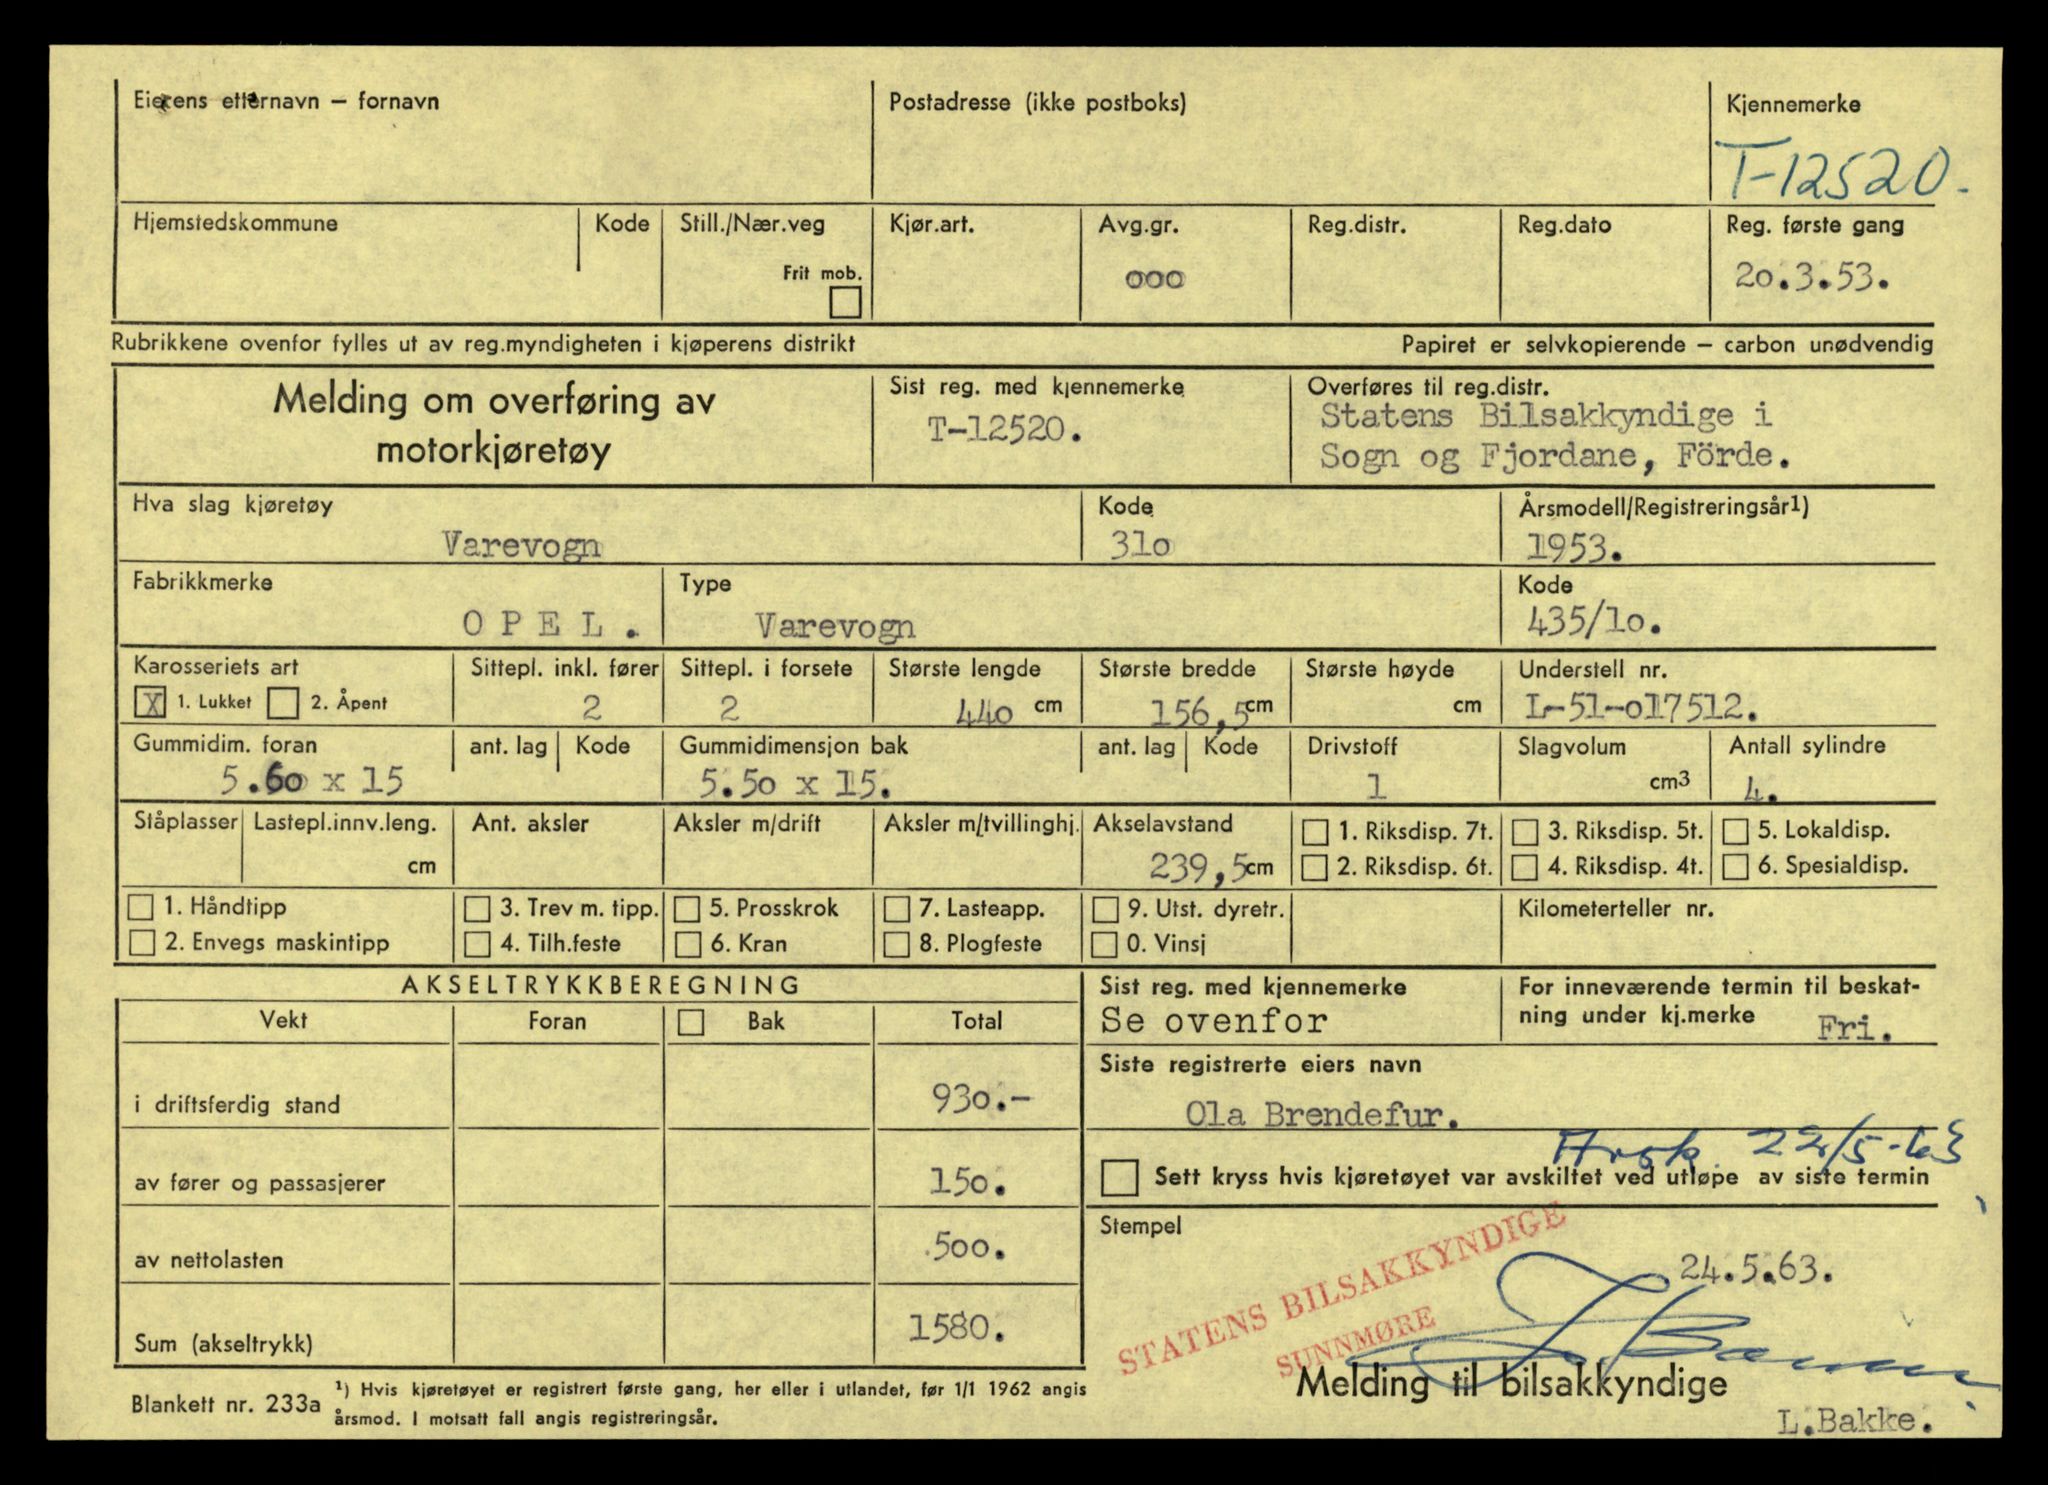 Eierens etternavn – fornavn
Postadresse (ikke postboks)
Kjennemerke
T-12520.
Hjemstedskommune
Kode
Still./Nær.veg
Frit mob.
Kjør.art.
Avg.gr.
ooo
Reg.distr.
Reg.dato
Reg. første gang
2o.3.53.
Rubrikkene ovenfor fylles ut av reg.myndigheten i kjøperens distrikt
Papiret er selvkopierende – carbon unødvendig
Melding om overføring av
motorkjøretøy
Sist reg. med kjennemerke
T-12520.
Overføres til reg.distr.
Statens Bilsakkyndige i
Sogn og Fjordane, Förde.
Hva slag kjøretøy
Varevogn
Kode
31o
Årsmodell/Registreringsår1)
1953.
Fabrikkmerke
O P E L .
Type
Varevogn
Kode
435/1o.
Karosseriets art
X 1. Lukket 2. Åpent
Sittepl. inkl. fører
2
Sittepl. i forsete
2
Største lengde
44o cm
Største bredde
156,5 cm
Største høyde
cm
Understell nr.
L-51-o17512.
Gummidim. foran
5.60 x 15
ant. lag
Kode
Gummidimensjon bak
5.5o x 15.
ant. lag
Kode
Drivstoff
1
Slagvolum
cm3
Antall sylindre
4.
Ståplasser
Lastepl.innv.leng.
cm
Ant. aksler
Aksler m/drift
Aksler m/tvillinghj.
Akselavstand
239,5 cm
1. Riksdisp. 7t.
2. Riksdisp. 6t.
3. Riksdisp. 5t.
4. Riksdisp. 4t.
5. Lokaldisp.
6. Spesialdisp.
1. Håndtipp
2. Envegs maskintipp
3. Trev m. tipp.
4. Tilh.feste
5. Prosskrok
6. Kran
7. Lasteapp.
8. Plogfeste
9. Utst. dyretr.
0. Vinsj
Kilometerteller nr.
AKSELTRYKKBEREGNING
Vekt
Foran
Bak
Total
i driftsferdig stand
93o.-
av fører og passasjerer
15o.
av nettolasten
5oo.
Sum (akseltrykk)
158o.
Sist reg. med kjennemerke
Se ovenfor
For inneværende termin til beskat-
ning under kj.merke
Fri.
Siste registrerte eiers navn
Ola Brendefur.
22/5-63
Sett kryss hvis kjøretøyet var avskiltet ved utløpe av siste termin
Stempel
STATENS BILSAKKYNDIGE
SUNNMØRE
24.5.63.
Melding til bilsakkyndige
L.Bakke.
Blankett nr. 233a
1) Hvis kjøretøyet er registrert første gang, her eller i utlandet, før 1/1 1962 angis
årsmod. I motsatt fall angis registreringsår.